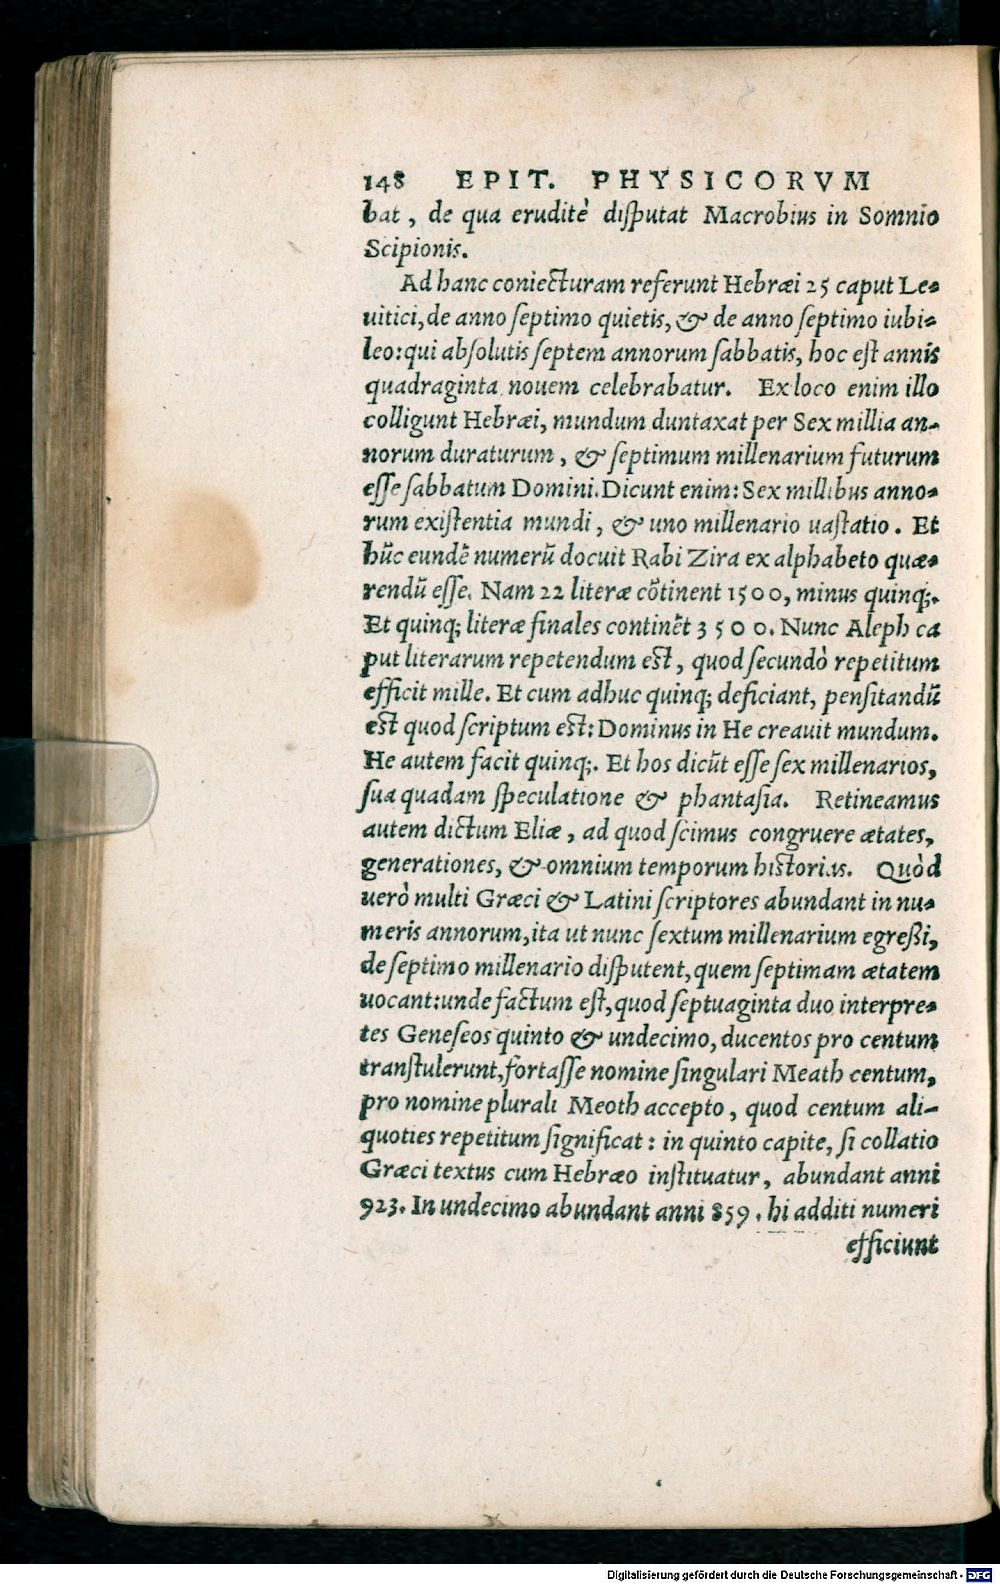 148 EPIT. PHYSICORVM
bat, de qua eruditè disputat Macrobius in Somnio
Scipionis.
Ad hanc coniecturam referunt Hebræi 25 caput Le-
uitici, de anno septimo quietis, & de anno septimo iubi-
leo: qui absolutis septem annorum sabbatis, hoc est annis
quadraginta nouem celebrabatur. Ex loco enim illo
colligunt Hebræi, mundum duntaxat per Sex millia an-
norum duraturum, & septimum millenarium futurum
esse sabbatum Domini. Dicunt enim: Sex millibus anno-
rum existentia mundi, & uno millenario uastatio. Et
hūc eundē numerū docuit Rabi Zira ex alphabeto quæ-
rendū esse. Nam 22 literæ cōtinent 1500, minus quinq;.
Et quinq; literæ finales continēt 3500. Nunc Aleph ca
put literarum repetendum est, quod secundò repetitum
efficit mille. Et cum adhuc quinq; deficiant, pensitandū
est quod scriptum est: Dominus in He creauit mundum.
He autem facit quinq;. Et hos dicūt esse sex millenarios,
sua quadam speculatione & phantasia. Retineamus
autem dictum Eliæ, ad quod scimus congruere ætates,
generationes, & omnium temporum historias. Quòd
uerò multi Græci & Latini scriptores abundant in nu-
meris annorum, ita ut nunc sextum millenarium egreßi,
de septimo millenario disputent, quem septimam ætatem
uocant: unde factum est, quod septuaginta duo interpre-
tes Geneseos quinto & undecimo, ducentos pro centum
transtulerunt, fortasse nomine singulari Meath centum,
pro nomine plurali Meoth accepto, quod centum ali-
quoties repetitum significat: in quinto capite, si collatio
Græci textus cum Hebræo instituatur, abundant anni
923. In undecimo abundant anni 859. hi additi numeri
efficiunt
Digitalisierung gefördert durch die Deutsche Forschungsgemeinschaft - DFG